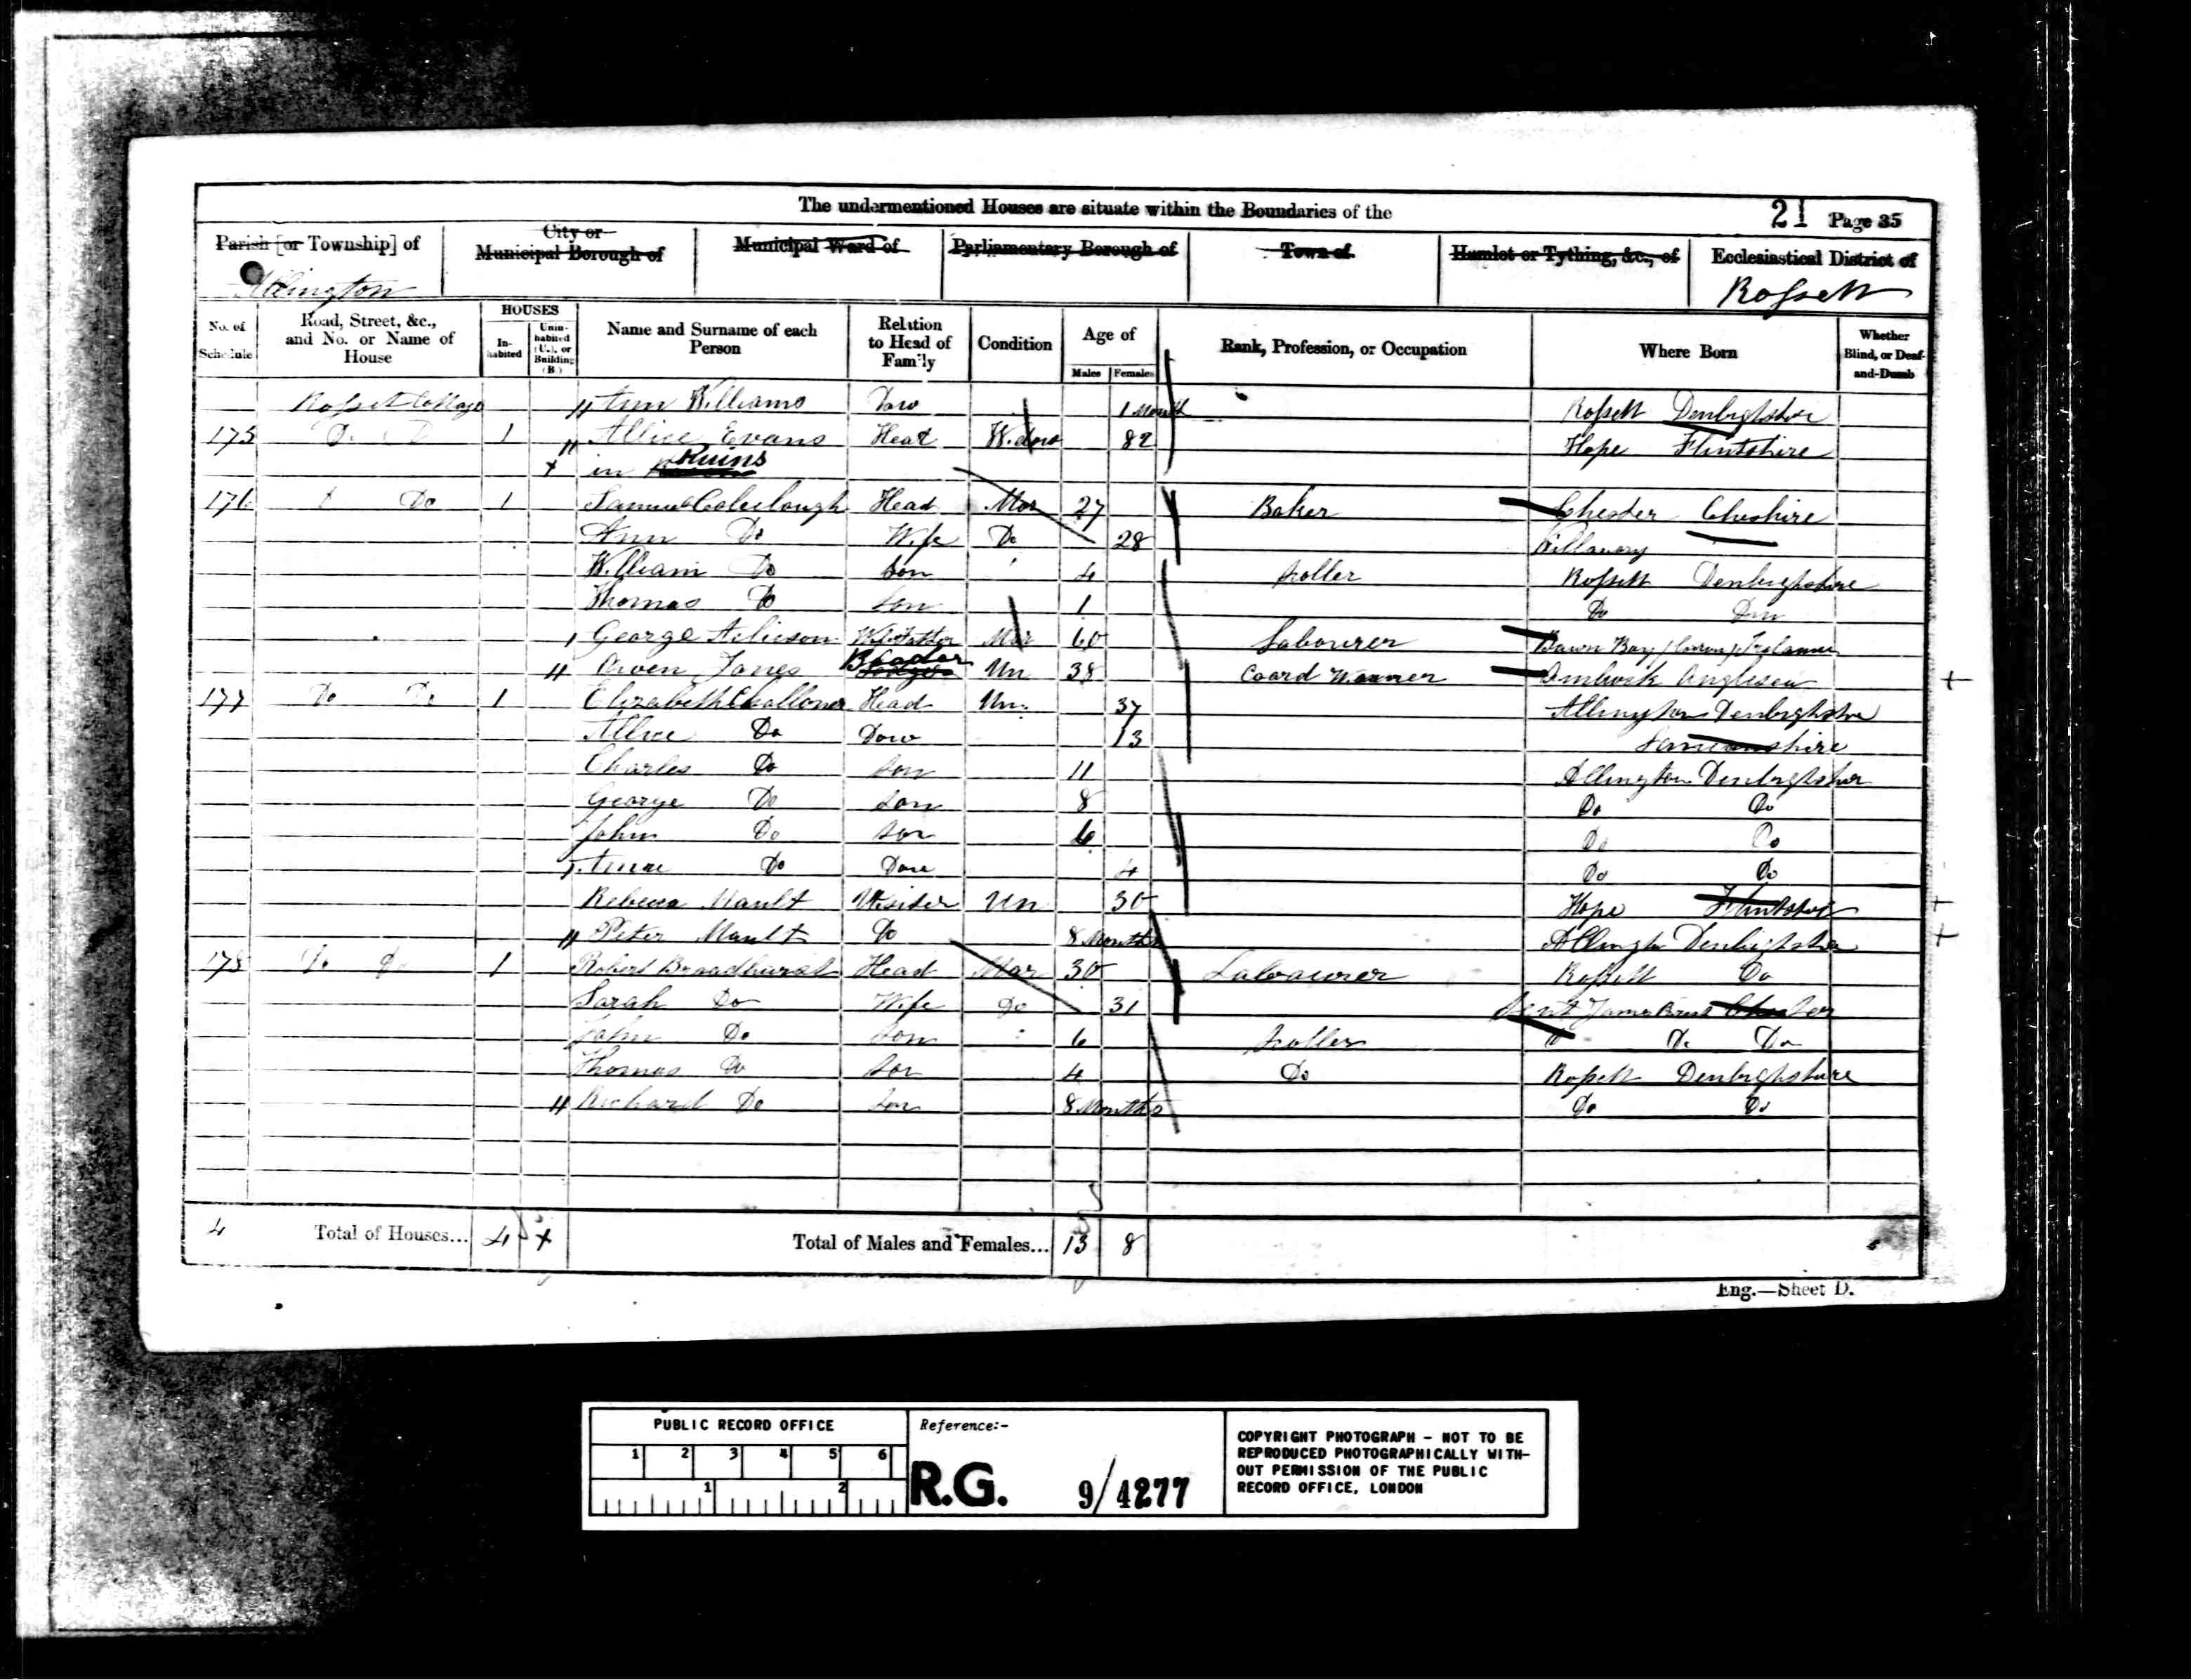 The undermentioned Houses are situate within the Boundaries of the
21 Page 35
Parish [or Township] of
City or Municipal Borough of
Municipal Ward of
Parliamentary Borough of
Town of
Hamlet or Tything, &c., of
Ecclesiastical District of
Allington
Rossett
No. of Schedule
Road, Street, &c., and No. or Name of House
HOUSES
In-habited
Unin-habited (U.), or Building (B.)
Name and Surname of each Person
Relation to Head of Family
Condition
Age of
Males
Females
Rank, Profession, or Occupation
Where Born
Whether Blind, or Deaf-and-Dumb
Rosset Cottage Ann Williams Daw 1 Month Rossett Denbighshire
175 Do Do 1 Allice Evans Head Widow 82 Hope Flintshire
+ in Ruins
176 Do 1 Samuel Head Mar 27 Baker Chester Cheshire
Ann Do Wife Do 28
William Do Son 4 Scoller Rossett Denbighshire
Thomas Do Son 1 Do Den
George Wife Father Mar 60 Labourer Bawn Boy Ireland
Owen Jones Boader Un 38 Coard Wainer Amlwch Anglesea
177 Do Do 1 Elizabeth Challoner Head Un 37 Allington Denbighshire
Allice Do Daw 13
Charles Do Son 11 Allington Denbighshire
George Do Son 8 Do Do
John Do Son 6 Do Do
Do Daw 4 Do Do
Rebecca Mault Visiter Un 30 Hope Flintshire
Peter Mault Do 8 Months Allington Denbighshire
178 Do Do 1 Robert Broadhurst Head Mar 30 Labourer Rossett Do
Sarah Do Wife Do 31
John Do Son 6 Scoller Do Do Do
Thomas Do Son 4 Do Rossett Denbighshire
Richard Do Son 8 Months Do Do
4 Total of Houses... 4 +
Total of Males and Females... 13 8
Eng.—Sheet D.
PUBLIC RECORD OFFICE
1 2 3 4 5 6
1 2
Reference:-
R.G. 9/4277
COPYRIGHT PHOTOGRAPH - NOT TO BE
REPRODUCED PHOTOGRAPHICALLY WITH-
OUT PERMISSION OF THE PUBLIC
RECORD OFFICE, LONDON